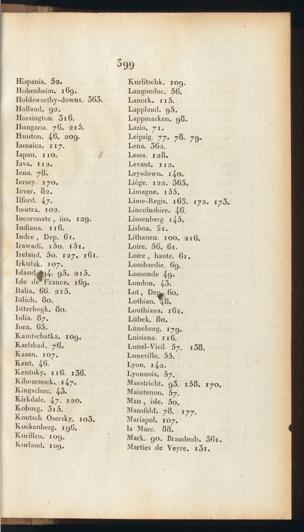 599
Hispania. 52.
Hohenheim. 169.
Holdsworthy-downs. 363.
Holland. 92.
Horsington. 316.
Hungaria. 76. 215.
Hunton. 46. 209.
Iamaica. 117.
Iapan. 110.
Iava. 112.
Iena. 78.
Iersey. 170.
Iever. 82.
Ilford. 47.
Imatra. 102.
Incoronate, ins. 129.
Indiana. 116.
Indre, Dep. 61.
Irawadi. 150. 151.
Ireland. 50. 127. 161.
Irkutsk. 107.
Island. 94. 95. 215.
Isle de France. 169.
Italia. 66. 215.
Iülich. 80.
Iüterbogk. 80.
Iulia. 87.
Iura. 65.
Kamtschatka. 109.
Karlsbad. 76.
Kasan. 107.
Kent. 46.
Kentuky. 116. 136.
Kilmarnoek. 147.
Kingsclere. 43.
Kirkdale. 47. 120.
Koburg. 315.
Kontsch Osersky. 103.
Kuckenberg. 196.
Kurillen. 109.
Kurland. 109.
Kurlitschk. 109.
Languedoc. 56.
Lanork. 115.
Lappland. 95.
Lappmarken. 98.
Lazio. 71.
Leipzig. 77. 78. 79.
Lena. 362.
Lessa. 128.
Levant. 112.
Leysdown. 140.
Liège. 122. 365.
Limagne. 155.
Lime-Regis. 163. 172. 173.
Lincolnshire. 46.
Linsenberg 145.
Lisboa. 51.
Lithanen. 100. 216.
Loire. 56. 61.
Loire, haute. 61.
Lombardie. 69.
Lomonde 49.
London. 43.
Lot, Dep. 60.
Lothian. 48.
Louthiana. 161.
Lübek. 80.
Lüneburg. 179.
Luisiana. 116.
Lunel-Vieil. 57. 138.
Luneville. 55.
Lyon. 142.
Lyonnois. 57.
Maestricht. 93. 158. 170.
Maintenon. 57.
Man, isle. 50.
Mansfeld. 78. 177.
Mariapol. 107.
la Marc. 88.
Mark. 90. Braudenb. 361.
Marties de Veyre. 131.